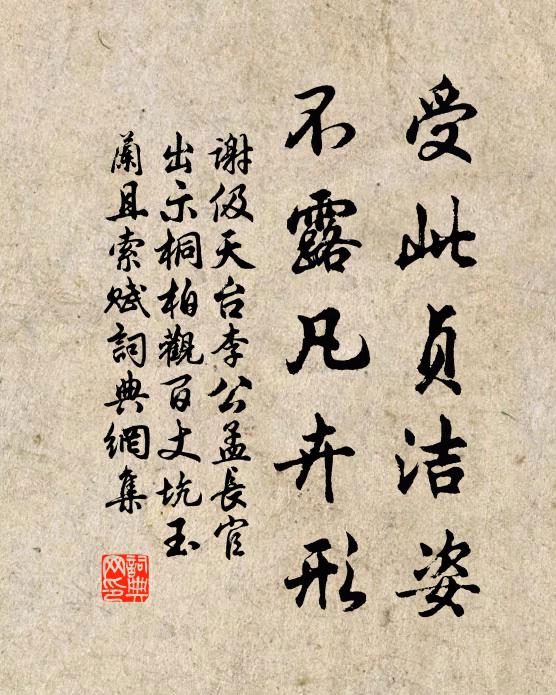 受此贞洁姿
不露凡卉形
谢伋天台李公孟长官
出示桐柏觀百丈坑玉
蘭且索赋詞典網集
詞典網印